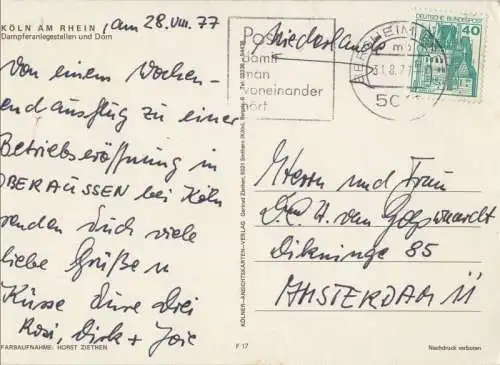 KÖLN AM RHEIN
Dampferanlegestellen und Dom
, am 28. VIII. 77
Von einem Wochen-
endausflug zu einer
Betriebseröffnung in
OBERAUSSEN bei Köln
senden Euch viele
liebe Grüße u
Küsse Eure Drei
Rosi, Dirk +
FARBAUFNAHME: HORST ZIETHEN
KÖLNER-ANSICHTSKARTEN-VERLAG Gertrud Ziethen, 5021 Sinthern (Köln),
F 17
Post
damit
man
voneinander
hört
Niederlande
BERGHEIM
31.8.77
50
DEUTSCHE BUNDESPOST
40
Herrn und Frau
Dr. H. van
85
AMSTERDAM 11
Nachdruck verboten